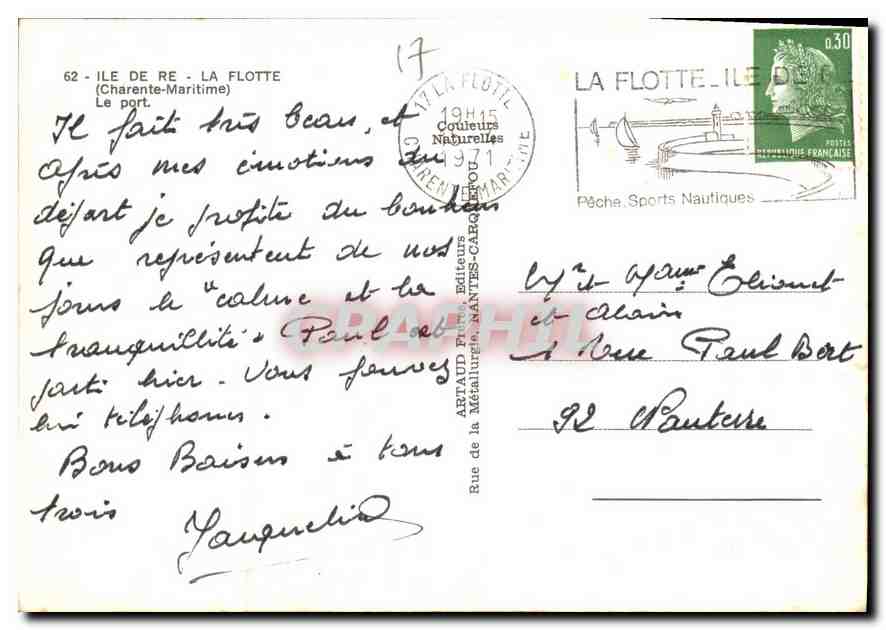 17
62 - ILE DE RE - LA FLOTTE
(Charente-Maritime)
Le port.
Il fait très beau, et
après mes émotions du
départ je profite du bonheur
que représentent de nos
jours le "calme et la
tranquillité" Paul est
parti hier. Vous pouvez
lui téléphoner.
Bons Baisers à tous
trois
Jacqueline
17 LA FLOTTE
19H15
1971
CHARENTE MARITIME
Couleurs
Naturelles
ARTAUD Frères, Editeurs
Rue de la Métallurgie, NANTES-CARQUEFOU
CPAPHIL
LA FLOTTE_ILE DE
Pêche, Sports Nautiques
0,30
POSTES
REPUBLIQUE FRANÇAISE
Mr et Mame
et Alain
1 Rue Paul Bert
92 Nanterre